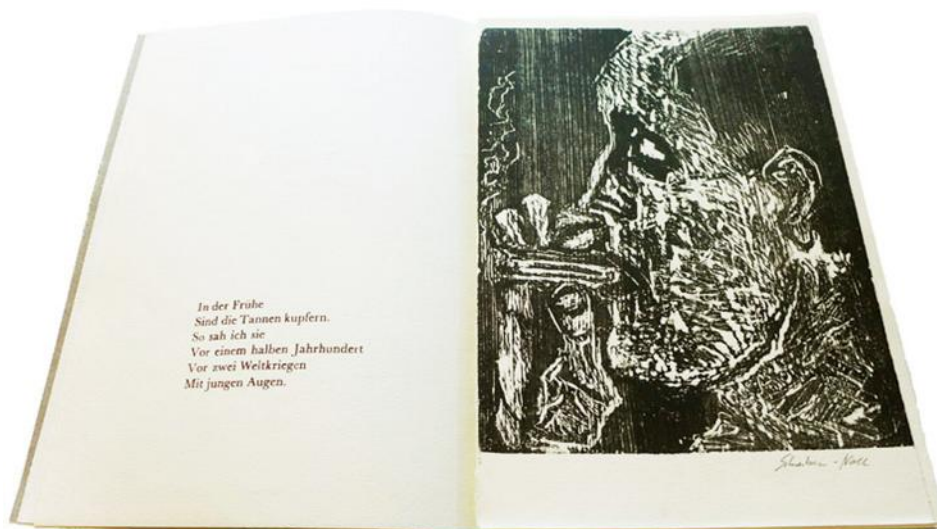 In der Frühe
Sind die Tannen kupfern.
So sah ich sie
Vor einem halben Jahrhundert
Vor zwei Weltkriegen
Mit jungen Augen.